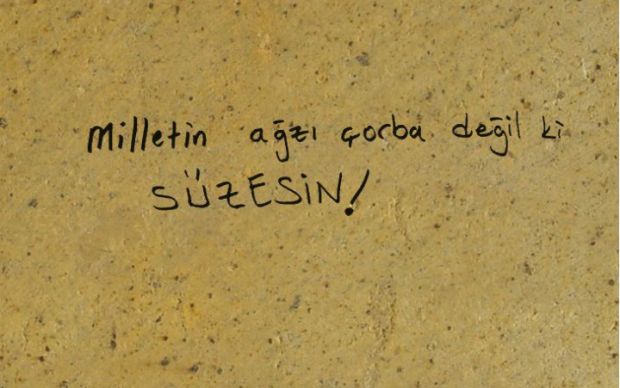 Milletin ağzı çorba değil ki
SÜZESİN!